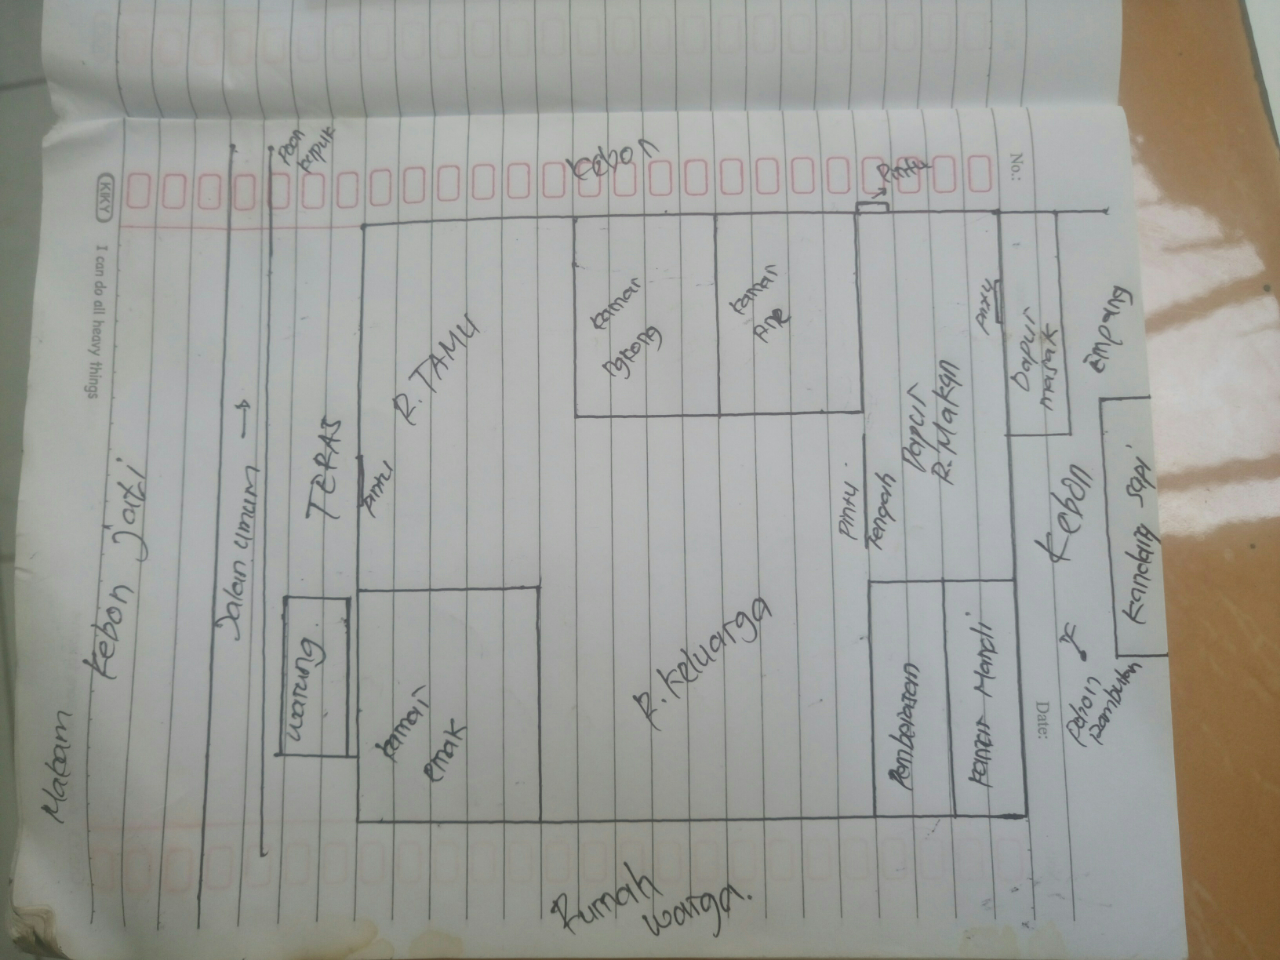 No.:
Date:
KIKY
I can do all heavy things
Makam
Kebon jati
Jalan umum →
Poon
Kapuk
Kebon
TERAS
Warung
Pintu
R. TAMU
Kamar
emak
Kamar
Kamar
Ane
R. Keluarga
Pintu
Tengah
Dapur
R. Makan
Pintu
Dapur
masak
Kamar Mandi
Empang
Kebon
Kandang Sapi
Pohon
Rambutan
Rumah
warga.